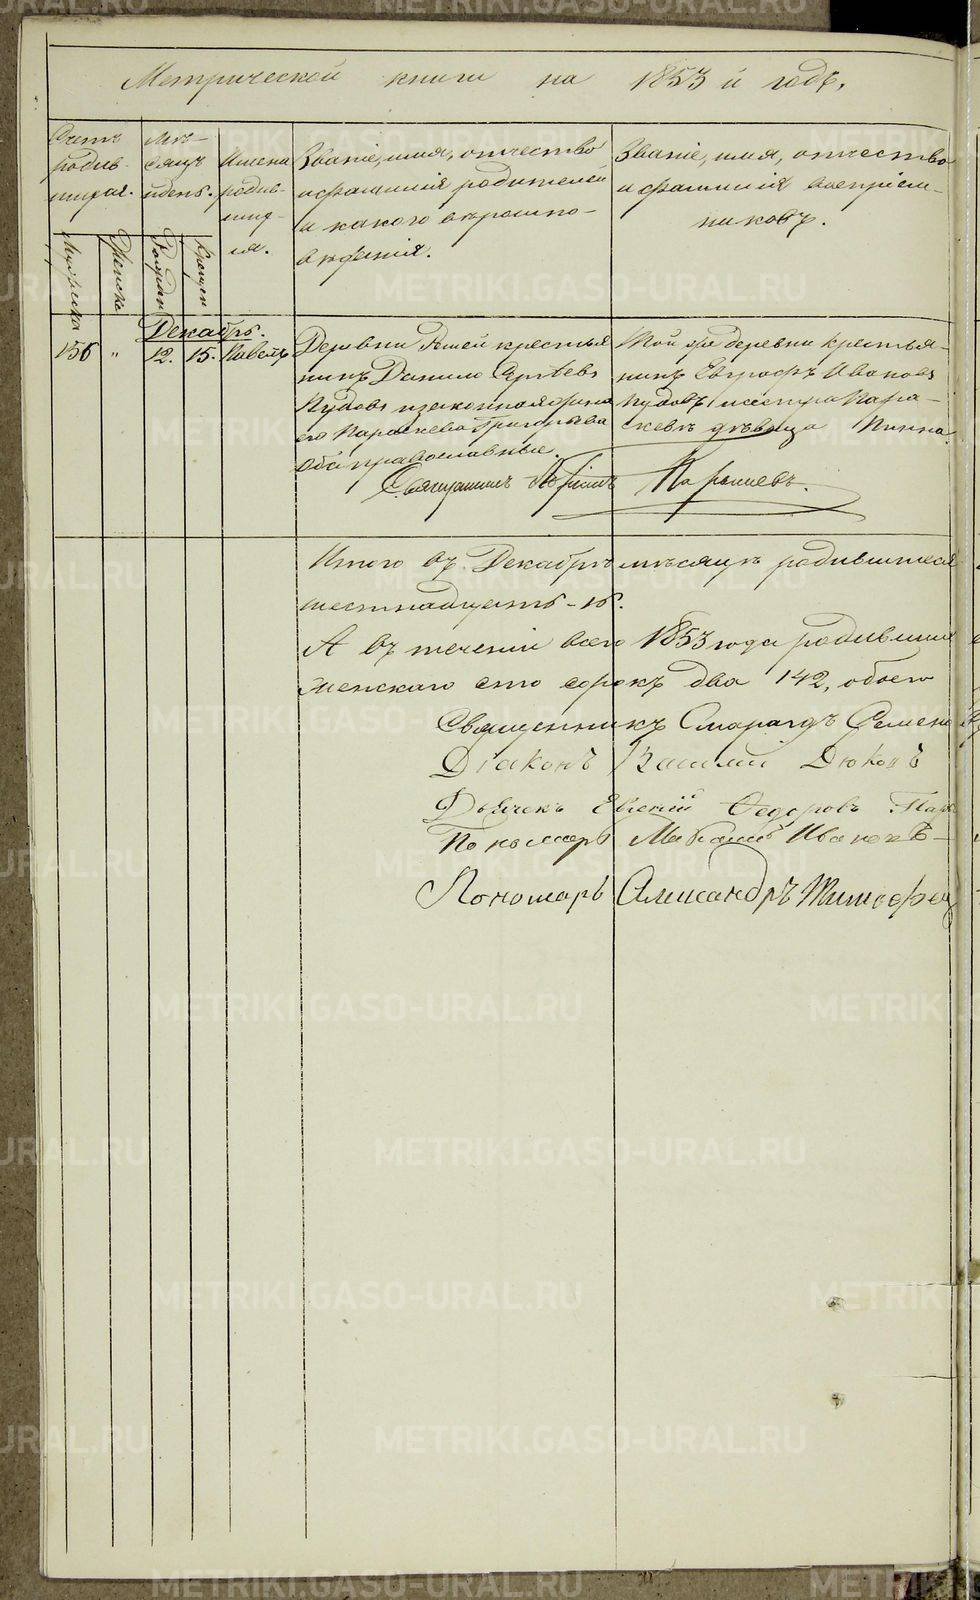 Метрической книги на 1853 й годъ.
Счетъ
родив-
шихся.
Мѣ-
сяцъ
и день.
Имена
родив-
ших-
ся.
Званіе, имя, отчество
и фамилія родителей
и какого вѣроиспо-
вѣданія.
Званіе, имя, отчество
и фамилія воспріем-
никовъ.
Мужеска
Женска
Рожден
Крещен
Декабрь.
156 " 12. 15. Павелъ
Деревни крестья
нинъ Данило Сергѣевъ
Пудовъ и законная жена
его Параскева Григорьева
оба православные.
Той же деревни крестья-
нинъ Евграфъ Ивановъ
Пудовъ и сестра Пара-
скева дѣвица
Священникъ
Итого въ Декабрѣ мѣсяцѣ родившихся
шестнадцать - 16.
А въ теченіи всего 1853 года родивших
женскаго сто сорокъ два 142, обоего
Священникъ Смарагдъ Семено
Діаконъ Василій
Дьячекъ Евгеній Федоровъ
Пономарь Михаилъ Ивановъ
Пономарь Александръ Тимофее
METRIKI.GASO-URAL.RU